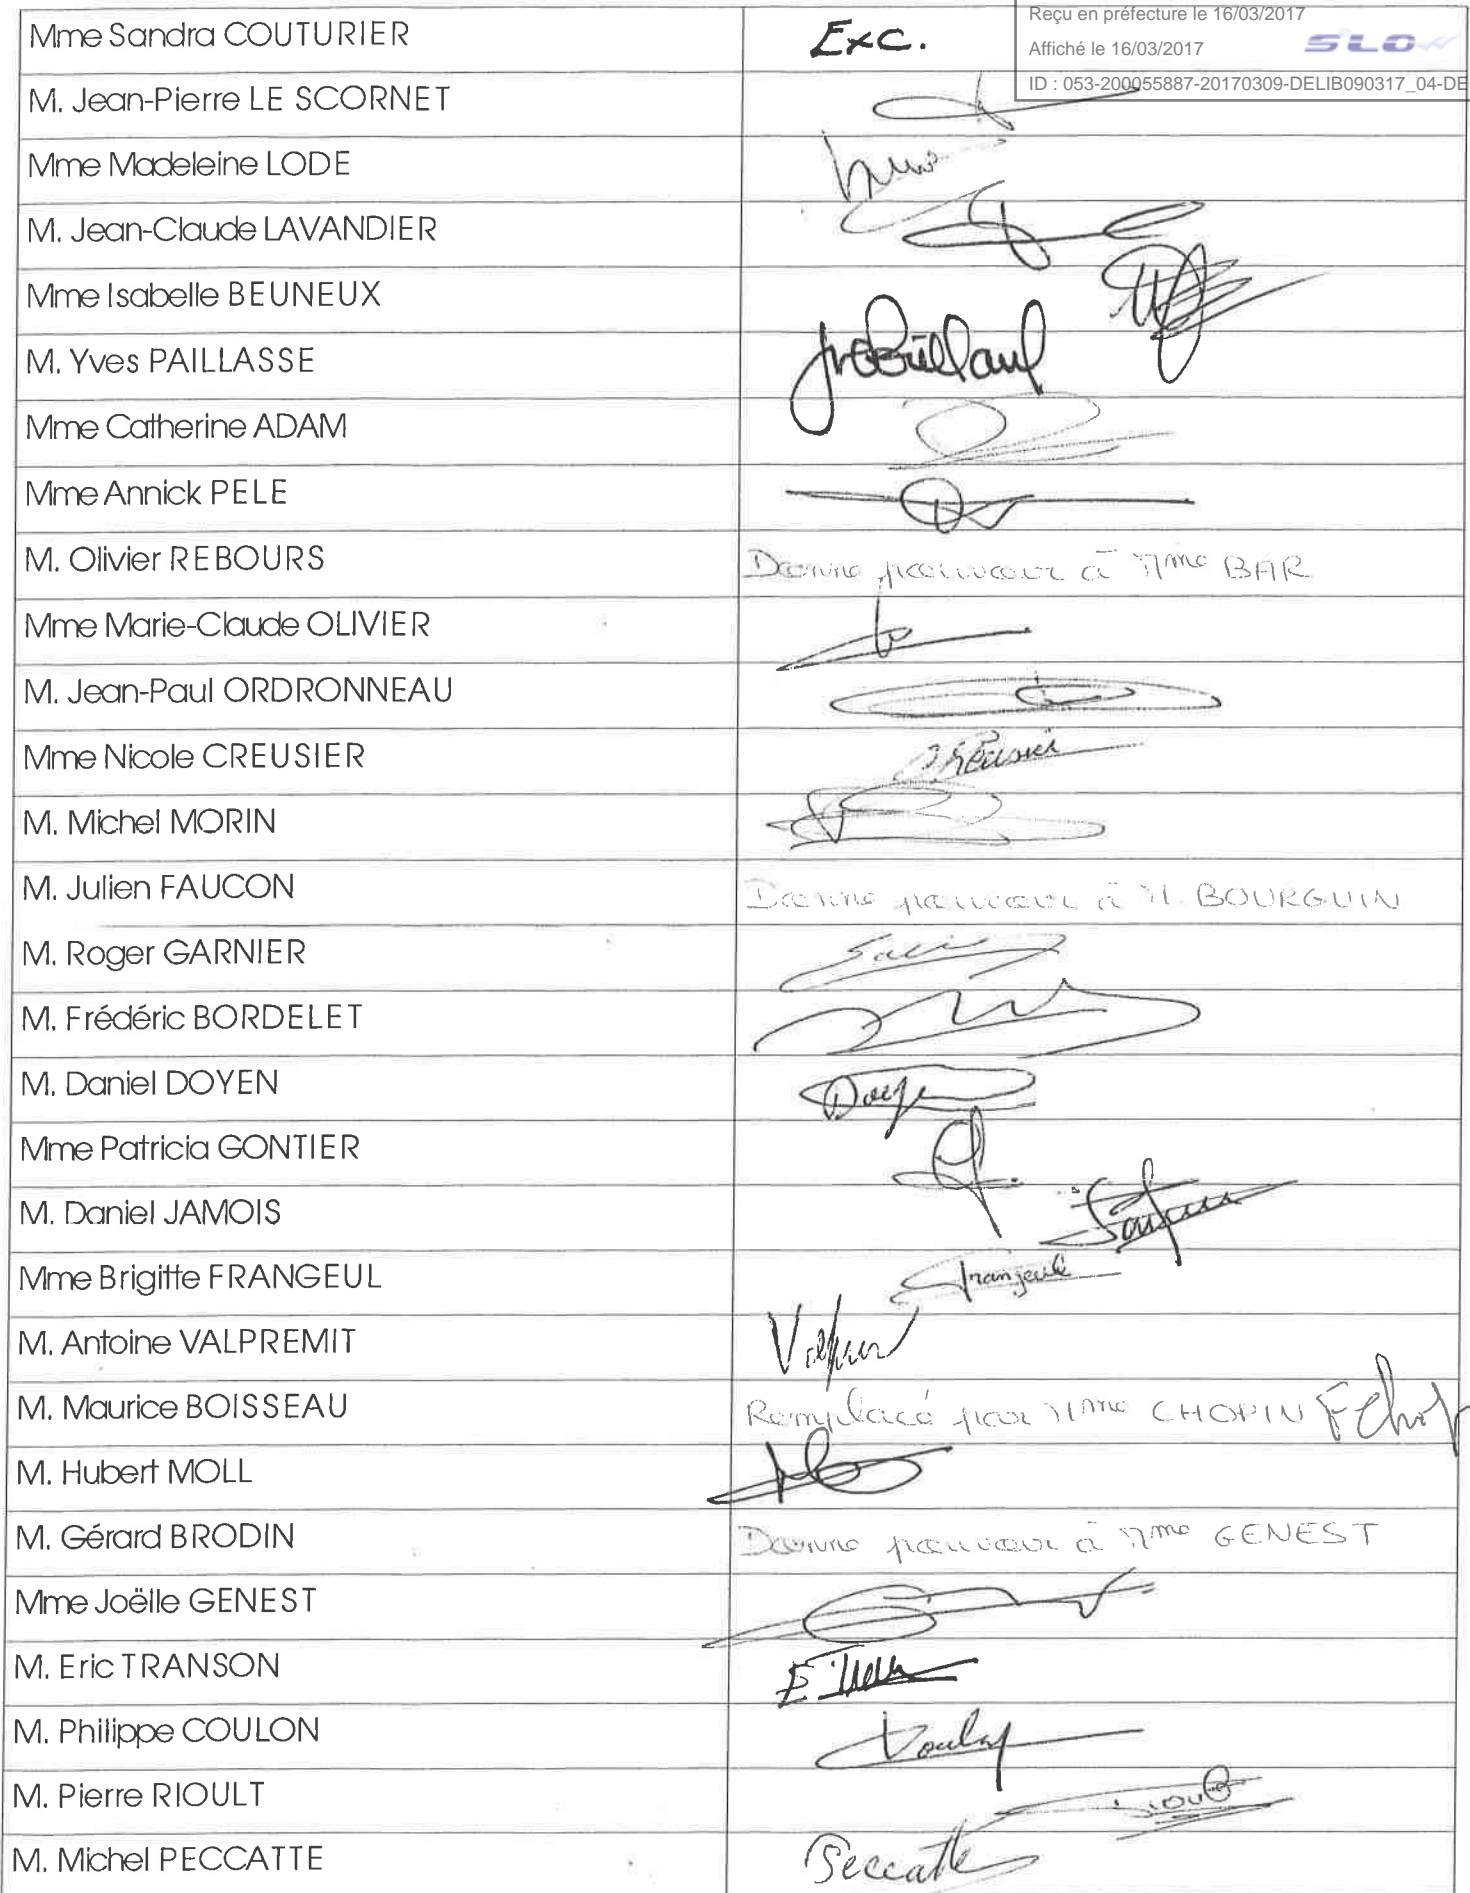 Reçu en préfecture le 16/03/2017
Affiché le 16/03/2017
SLO
ID : 053-200055887-20170309-DELIB090317_04-DE
Mme Sandra COUTURIER Exc.
M. Jean-Pierre LE SCORNET
Mme Madeleine LODE
M. Jean-Claude LAVANDIER
Mme Isabelle BEUNEUX
M. Yves PAILLASSE
Mme Catherine ADAM
Mme Annick PELE
M. Olivier REBOURS Donne pouvoir à Mme BAR
Mme Marie-Claude OLIVIER
M. Jean-Paul ORDRONNEAU
Mme Nicole CREUSIER
M. Michel MORIN
M. Julien FAUCON Donne pouvoir à M. BOURGUIN
M. Roger GARNIER
M. Frédéric BORDELET
M. Daniel DOYEN
Mme Patricia GONTIER
M. Daniel JAMOIS
Mme Brigitte FRANGEUL
M. Antoine VALPREMIT
M. Maurice BOISSEAU Remplacé par Mme CHOPIN
M. Hubert MOLL
M. Gérard BRODIN Donne pouvoir à Mme GENEST
Mme Joëlle GENEST
M. Eric TRANSON
M. Philippe COULON
M. Pierre RIOULT
M. Michel PECCATTE Peccatte